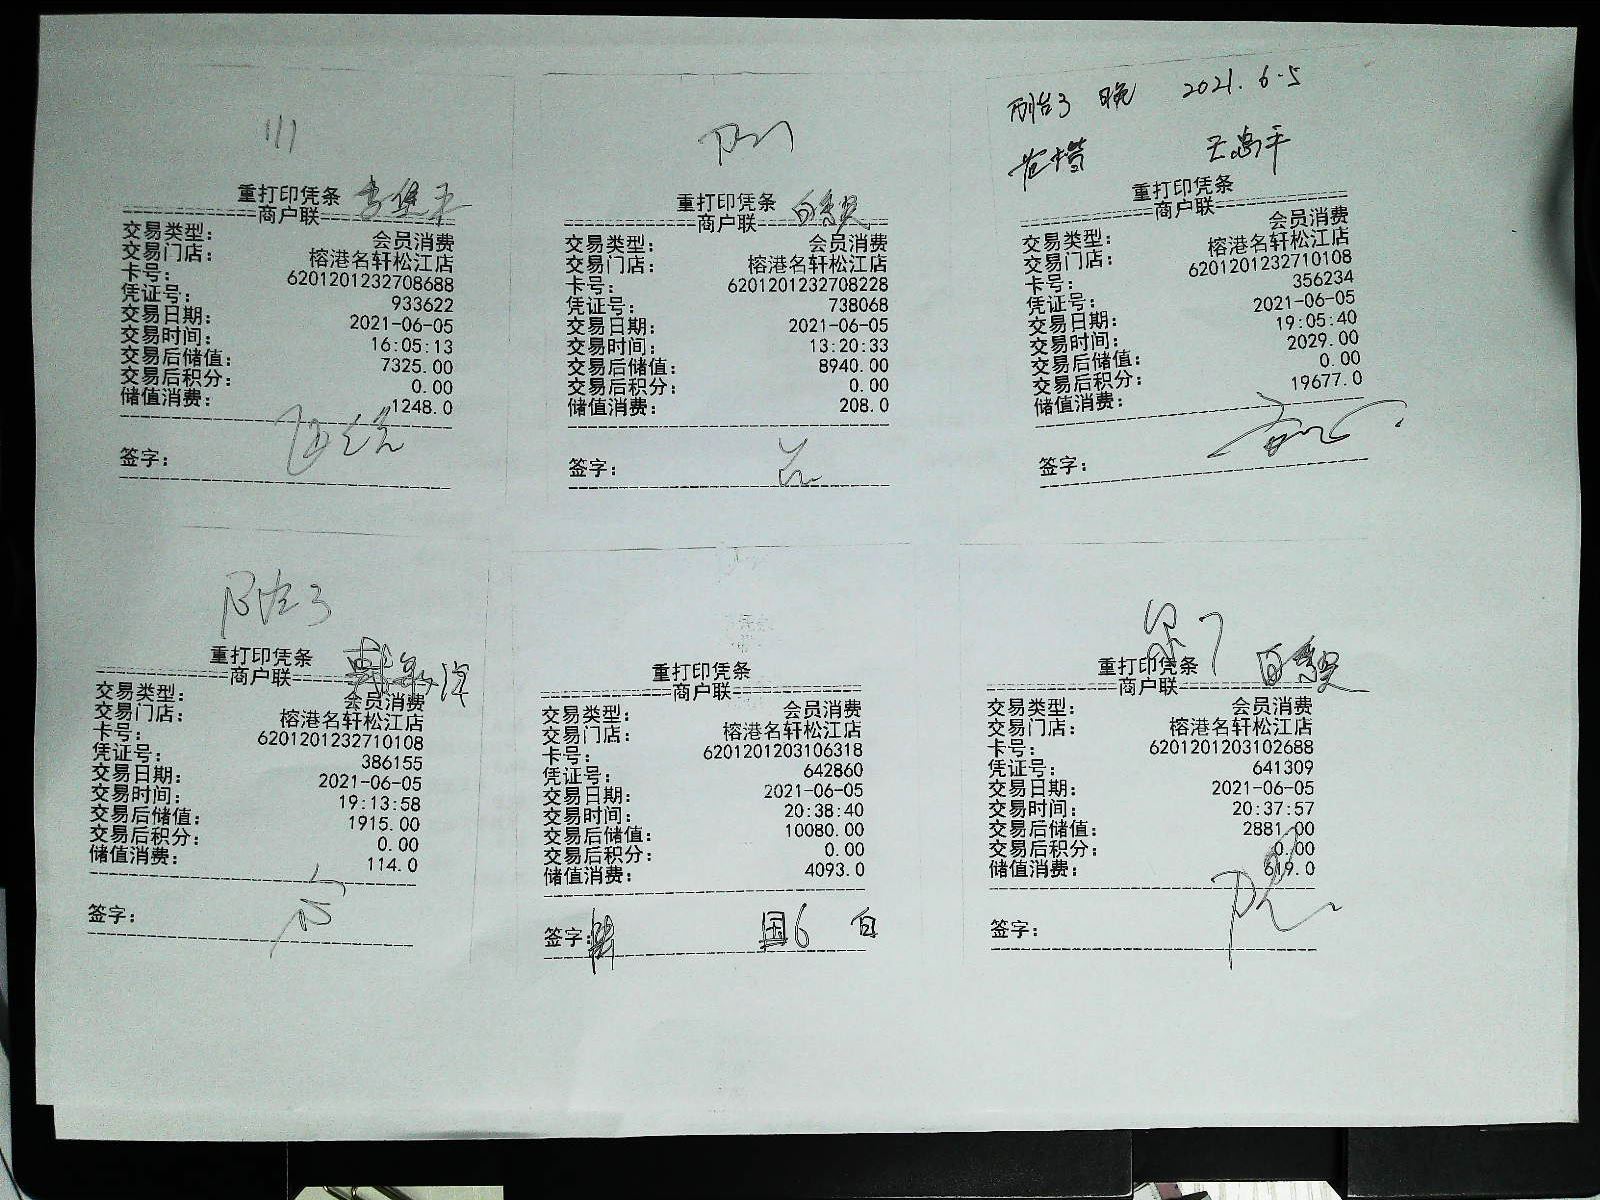 111
重打印凭条
商户联
交易类型: 会员消费
交易门店: 榕港名轩松江店
卡号: 6201201232708688
凭证号: 933622
交易日期: 2021-06-05
交易时间: 16:05:13
交易后储值: 7325.00
交易后积分: 0.00
储值消费: 1248.0
签字:
重打印凭条
商户联
交易类型: 会员消费
交易门店: 榕港名轩松江店
卡号: 6201201232708228
凭证号: 738068
交易日期: 2021-06-05
交易时间: 13:20:33
交易后储值: 8940.00
交易后积分: 0.00
储值消费: 208.0
签字:
晚 2021.6.5
重打印凭条
商户联
交易类型: 会员消费
交易门店: 榕港名轩松江店
卡号: 6201201232710108
凭证号: 356234
交易日期: 2021-06-05
交易时间: 19:05:40
交易后储值: 2029.00
交易后积分: 0.00
储值消费: 19677.0
签字:
重打印凭条
商户联
交易类型: 会员消费
交易门店: 榕港名轩松江店
卡号: 6201201232710108
凭证号: 386155
交易日期: 2021-06-05
交易时间: 19:13:58
交易后储值: 1915.00
交易后积分: 0.00
储值消费: 114.0
签字:
重打印凭条
商户联
交易类型: 会员消费
交易门店: 榕港名轩松江店
卡号: 6201201203106318
凭证号: 642860
交易日期: 2021-06-05
交易时间: 20:38:40
交易后储值: 10080.00
交易后积分: 0.00
储值消费: 4093.0
签字: 国6 白
重打印凭条
商户联
交易类型: 会员消费
交易门店: 榕港名轩松江店
卡号: 6201201203102688
凭证号: 641309
交易日期: 2021-06-05
交易时间: 20:37:57
交易后储值: 2881.00
交易后积分: 0.00
储值消费: 619.0
签字: